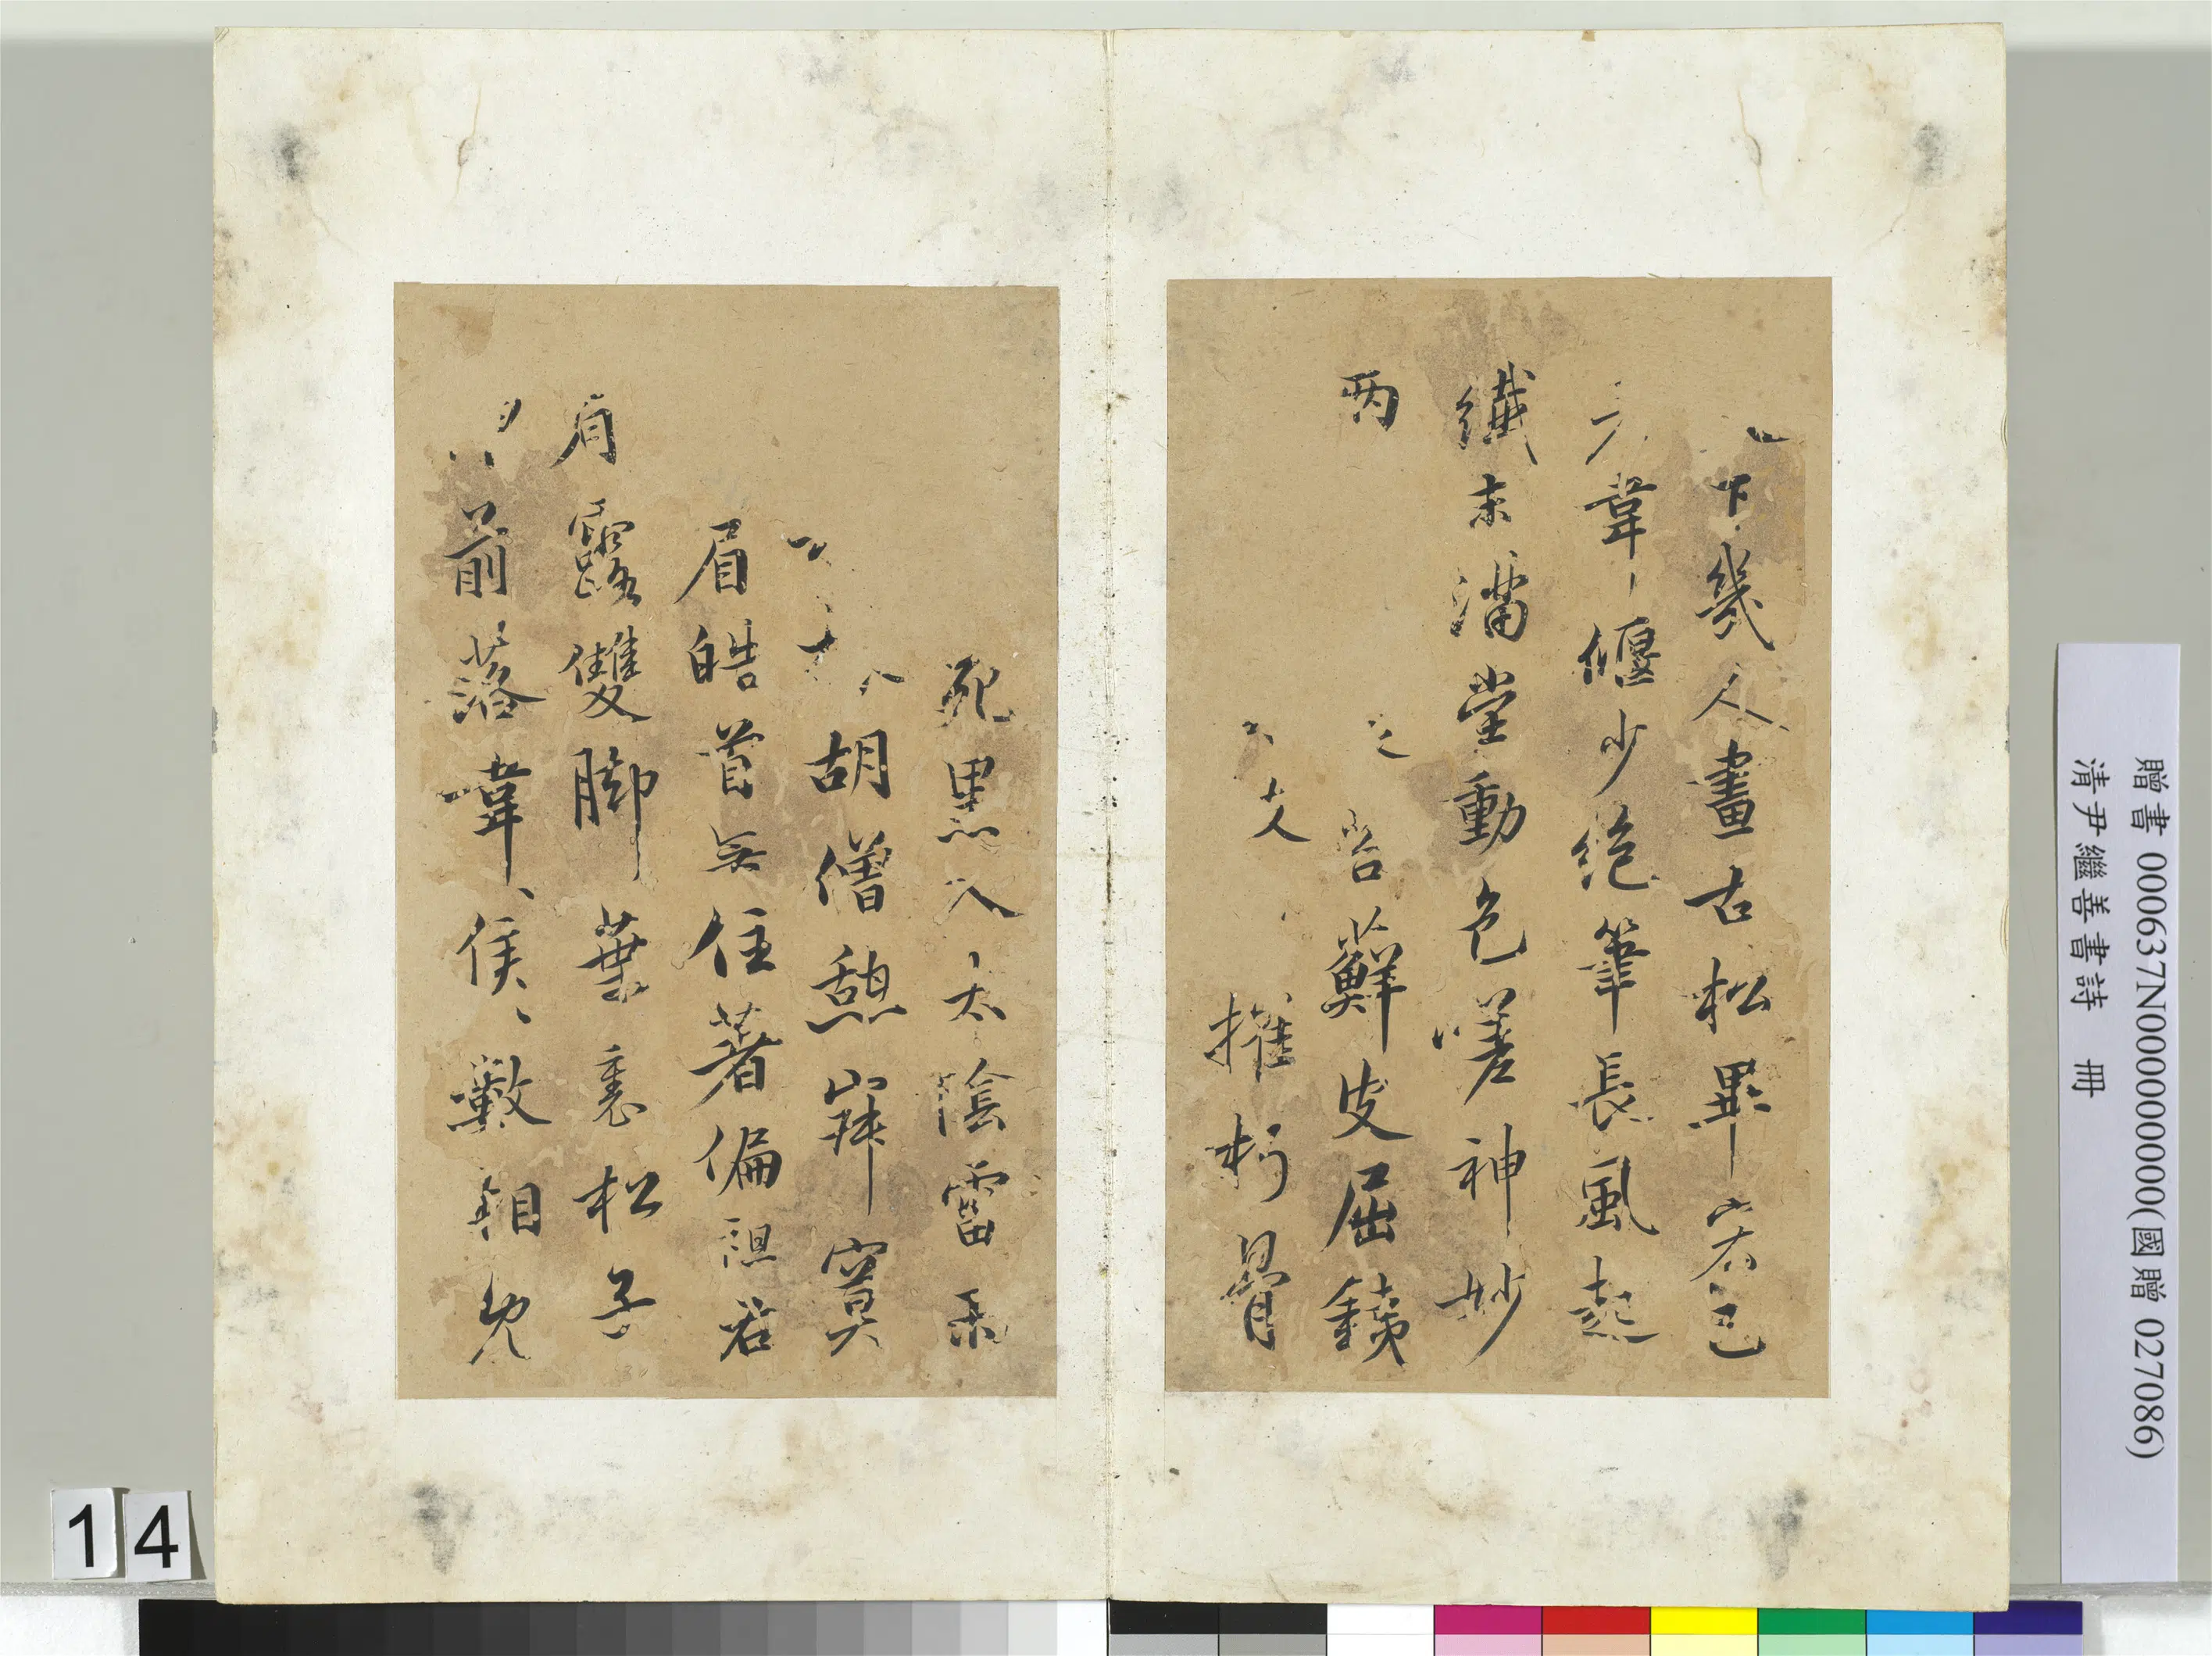 下幾人畫古松畢宏已
韋偃少絶筆長風起
纖末滿堂動色嗟神妙
兩
苔蘚皮屈鐵
摧朽骨
死黑入太陰雷
胡僧憩寂寞
眉皓首無住著偏袒右
肩露雙腳葉裏松子
前落韋侯數相見
贈書 000637N000000000(國贈 027086)
清尹繼善書詩 冊
14